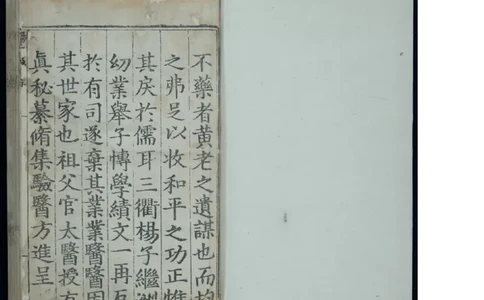 不藥者黃老之遺謀也而均
之弗足以收和平之功正惟
其戾於儒耳三衢楊子繼洲
幼業舉子慱學績文一再厄
於有司遂棄其業業醫醫因
其世家也祖父官太醫授有
眞秘纂脩集驗醫方進呈